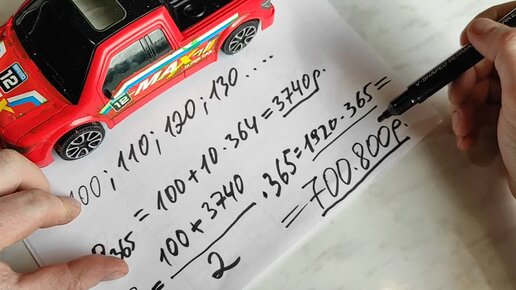 12
MAX-1
12
100; 110; 120; 130 ....
365 = 100 + 10 · 364 = 3740р.
= 100 + 3740 / 2 · 365 = 1920 · 365 =
= 700.800р.